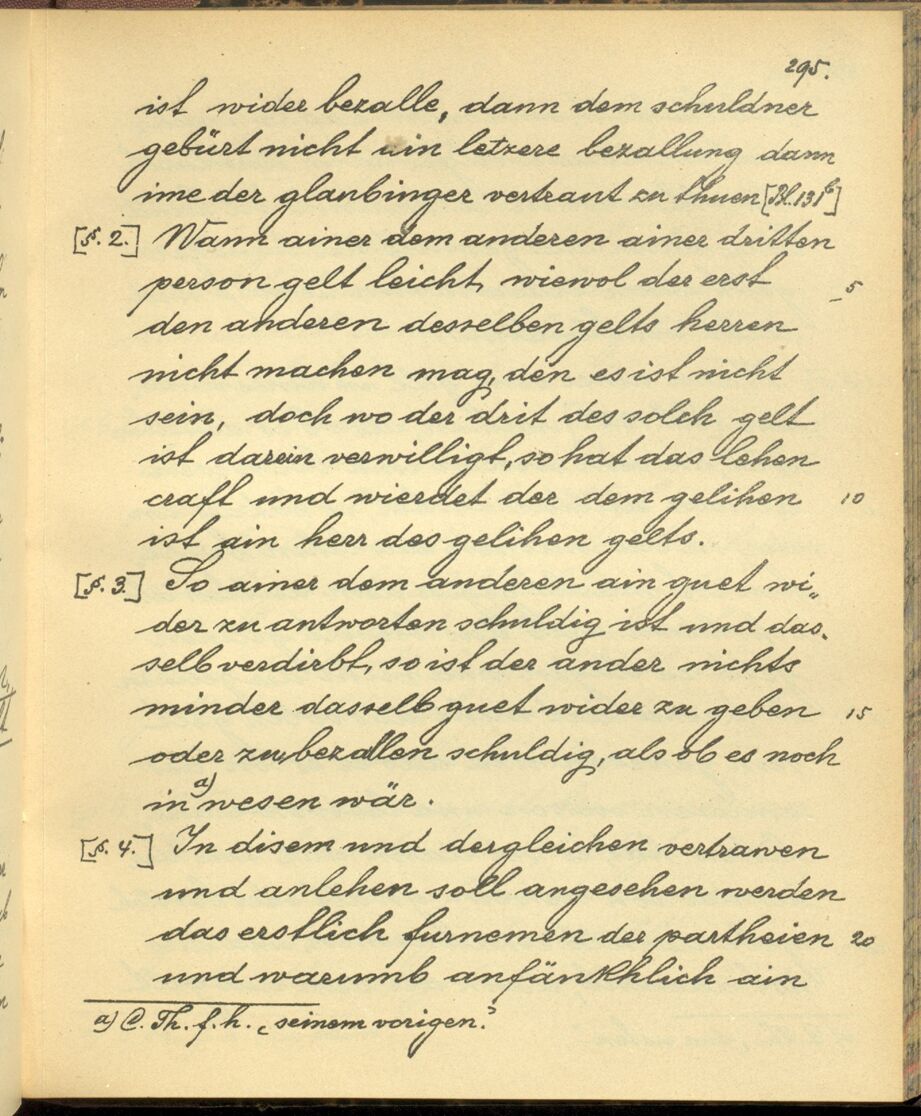 295.
ist wider bezalle, dann dem schuldner
gebürt nicht ain letzere bezallung dann
ime der glaubinger vertraut zu thuen [Bl. 131b]
[§. 2.] Wann ainer dem anderen ainer dritten
person gelt leicht, wiewol der erst 5
den anderen desselben gelts herren
nicht machen mag, den es ist nicht
sein, doch wo der drit des solch gelt
ist darein verwilligt, so hat das lehen
craft und wierdet der dem gelihen 10
ist ain herr des gelihen gelts.
[§. 3.] So ainer dem anderen ain guet wi„
der zu antworten schuldig ist und das„
selb verdirbt, so ist der ander nichts
minder dasselb guet wider zu geben 15
oder zu bezallen schuldig, als ob es noch
in a) wesen wär.
[§. 4.] In disem und dergleichen vertrawen
und anlehen soll angesehen werden
das erstlich furnemen der partheien 20
und warumb anfänkhlich ain
a) C. Th. f. h. „seinem vorigen.“